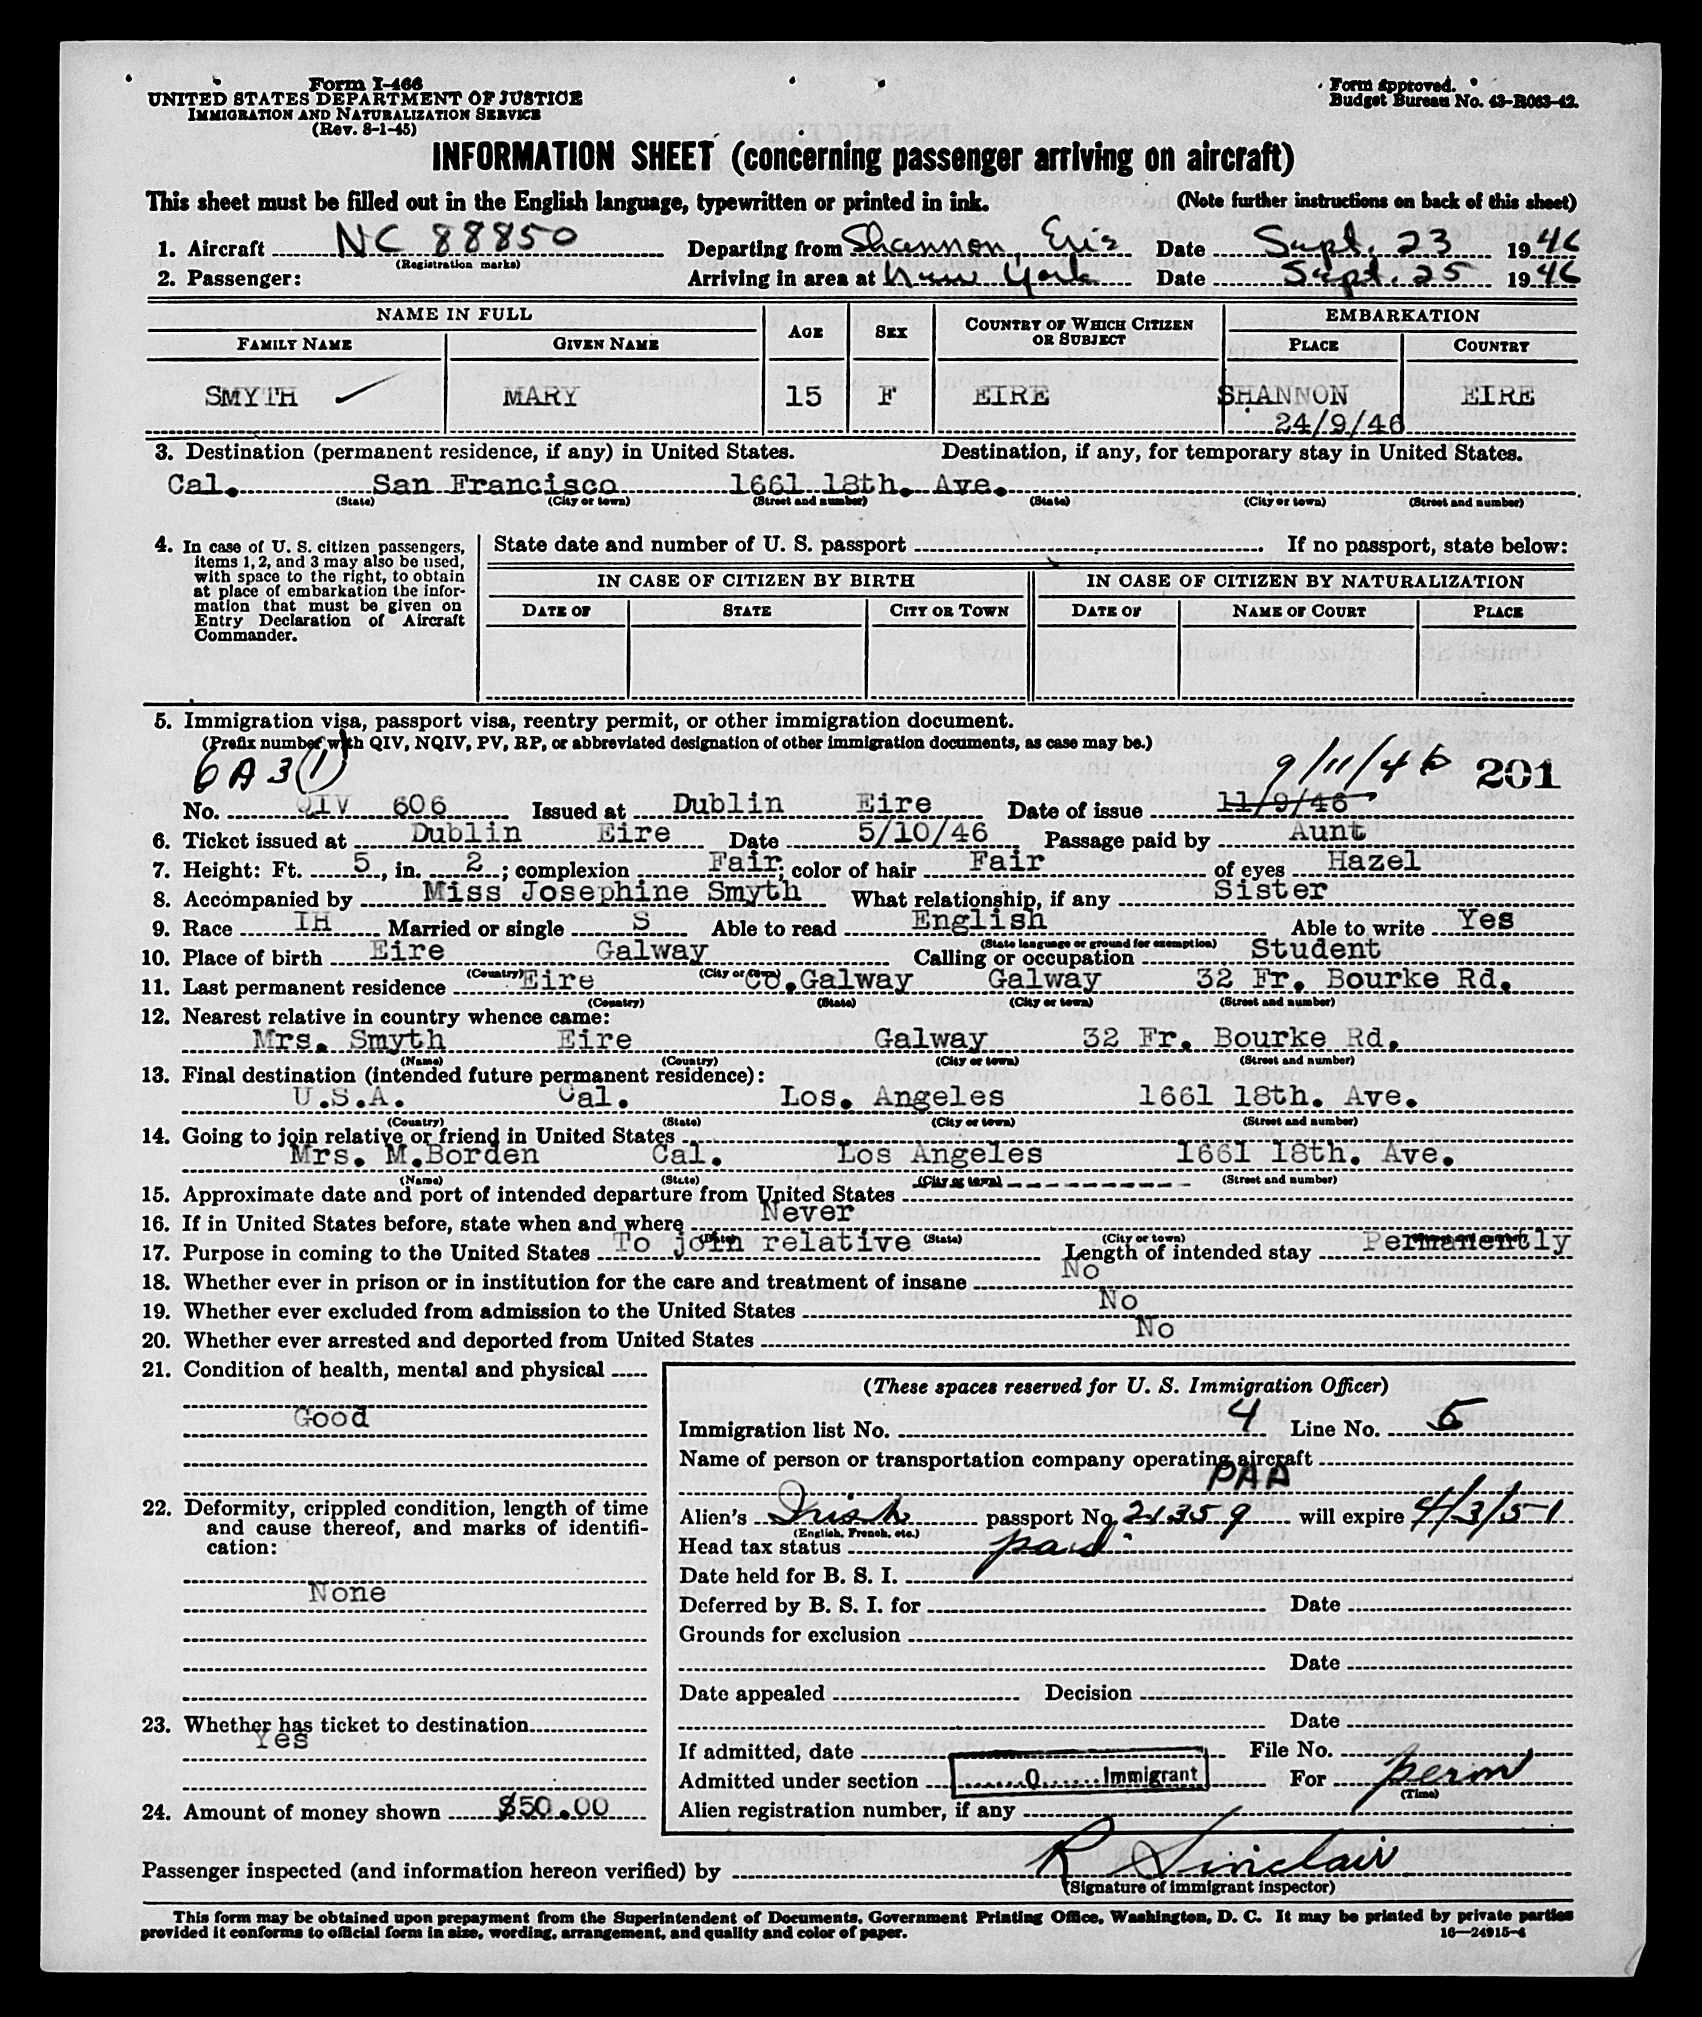 Form I-466
UNITED STATES DEPARTMENT OF JUSTICE
IMMIGRATION AND NATURALIZATION SERVICE
(Rev. 8-1-45)
Form approved.
Budget Bureau No. 43-R063-42.
INFORMATION SHEET (concerning passenger arriving on aircraft)
This sheet must be filled out in the English language, typewritten or printed in ink. (Note further instructions on back of this sheet)
1. Aircraft NC 88850 Departing from Shannon, Eris Date Sept. 23 1946
(Registration marks)
2. Passenger: Arriving in area at New York Date Sept. 25 1946
NAME IN FULL AGE SEX COUNTRY OF WHICH CITIZEN OR SUBJECT EMBARKATION
FAMILY NAME GIVEN NAME PLACE COUNTRY
SMYTH MARY 15 F EIRE SHANNON EIRE
24/9/46
3. Destination (permanent residence, if any) in United States. Destination, if any, for temporary stay in United States.
Cal. San Francisco 1661 18th. Ave.
(State) (City or town) (Street and number) (State) (City or town) (Street and number)
4. In case of U. S. citizen passengers,
items 1, 2, and 3 may also be used,
with space to the right, to obtain
at place of embarkation the infor-
mation that must be given on
Entry Declaration of Aircraft
Commander.
State date and number of U. S. passport If no passport, state below:
IN CASE OF CITIZEN BY BIRTH IN CASE OF CITIZEN BY NATURALIZATION
DATE OF STATE CITY OR TOWN DATE OF NAME OF COURT PLACE
5. Immigration visa, passport visa, reentry permit, or other immigration document.
(Prefix number with QIV, NQIV, PV, RP, or abbreviated designation of other immigration documents, as case may be.)
6 A 3 (1) 9/11/46 201
No. QIV 606 Issued at Dublin Eire Date of issue 11/9/46
6. Ticket issued at Dublin Eire Date 5/10/46 Passage paid by Aunt
7. Height: Ft. 5, in. 2; complexion Fair; color of hair Fair of eyes Hazel
8. Accompanied by Miss Josephine Smyth What relationship, if any Sister
9. Race IH Married or single S Able to read English Able to write Yes
(State language or ground for exemption)
10. Place of birth Eire Galway Calling or occupation Student
(Country) (City or town)
11. Last permanent residence Eire Co.Galway Galway 32 Fr. Bourke Rd.
(Country) (State) (City or town) (Street and number)
12. Nearest relative in country whence came:
Mrs. Smyth Eire Galway 32 Fr. Bourke Rd.
(Name) (Country) (City or town) (Street and number)
13. Final destination (intended future permanent residence):
U.S.A. Cal. Los. Angeles 1661 18th. Ave.
(Country) (State) (City or town) (Street and number)
14. Going to join relative or friend in United States
Mrs. M.Borden Cal. Los Angeles 1661 18th. Ave.
(Name) (State) (City or town) (Street and number)
15. Approximate date and port of intended departure from United States
16. If in United States before, state when and where Never
(Date) (State) (City or town)
17. Purpose in coming to the United States To join relative Length of intended stay Permanently
18. Whether ever in prison or in institution for the care and treatment of insane No
19. Whether ever excluded from admission to the United States No
20. Whether ever arrested and deported from United States No
21. Condition of health, mental and physical
Good
22. Deformity, crippled condition, length of time
and cause thereof, and marks of identifi-
cation:
None
23. Whether has ticket to destination
Yes
24. Amount of money shown $50.00
(These spaces reserved for U. S. Immigration Officer)
Immigration list No. 4 Line No. 5
Name of person or transportation company operating aircraft
PAA
Alien's Irish passport No. 21359 will expire 4/3/51
(English, French, etc.)
Head tax status paid
Date held for B. S. I.
Deferred by B. S. I. for Date
Grounds for exclusion
Date
Date appealed Decision
Date
If admitted, date File No.
Admitted under section Q Immigrant For perm
(Time)
Alien registration number, if any
Passenger inspected (and information hereon verified) by R Sinclair
(Signature of immigrant inspector)
This form may be obtained upon prepayment from the Superintendent of Documents, Government Printing Office, Washington, D. C. It may be printed by private parties
provided it conforms to official form in size, wording, arrangement, and quality and color of paper. 16—24915-4